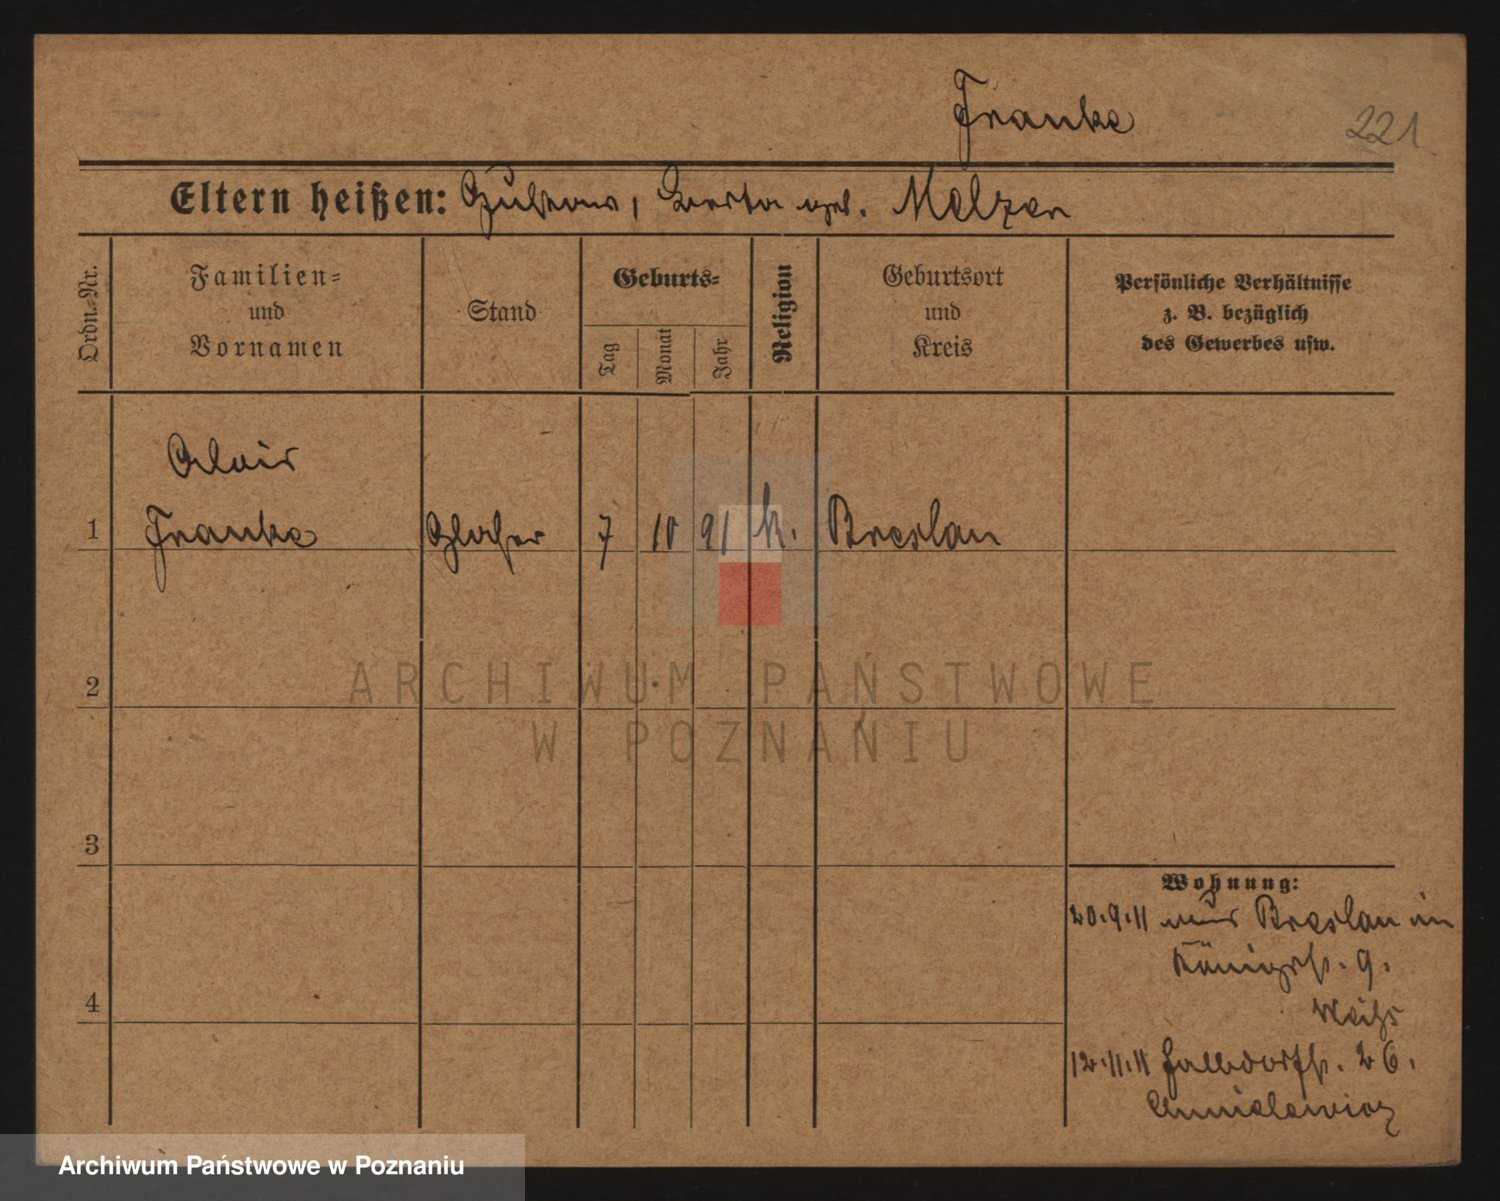 Franke
221
Eltern heißen: Gustav, Berta geb. Melzer
Ordn.-Nr.
Familien-
und
Vornamen
Stand
Geburts-
Tag
Monat
Jahr
Religion
Geburtsort
und
Kreis
Persönliche Verhältnisse
z. B. bezüglich
des Gewerbes usw.
Alois
1 Franke Glaser 7 10 91 k. Breslau
2
3
4
Wohnung:
20.9.11 aus Breslau in
Königsstr. 9.
12.11.11 Halbdorfstr. 26.
Chmielewicz
ARCHIWUM PAŃSTWOWE
W POZNANIU
Archiwum Państwowe w Poznaniu